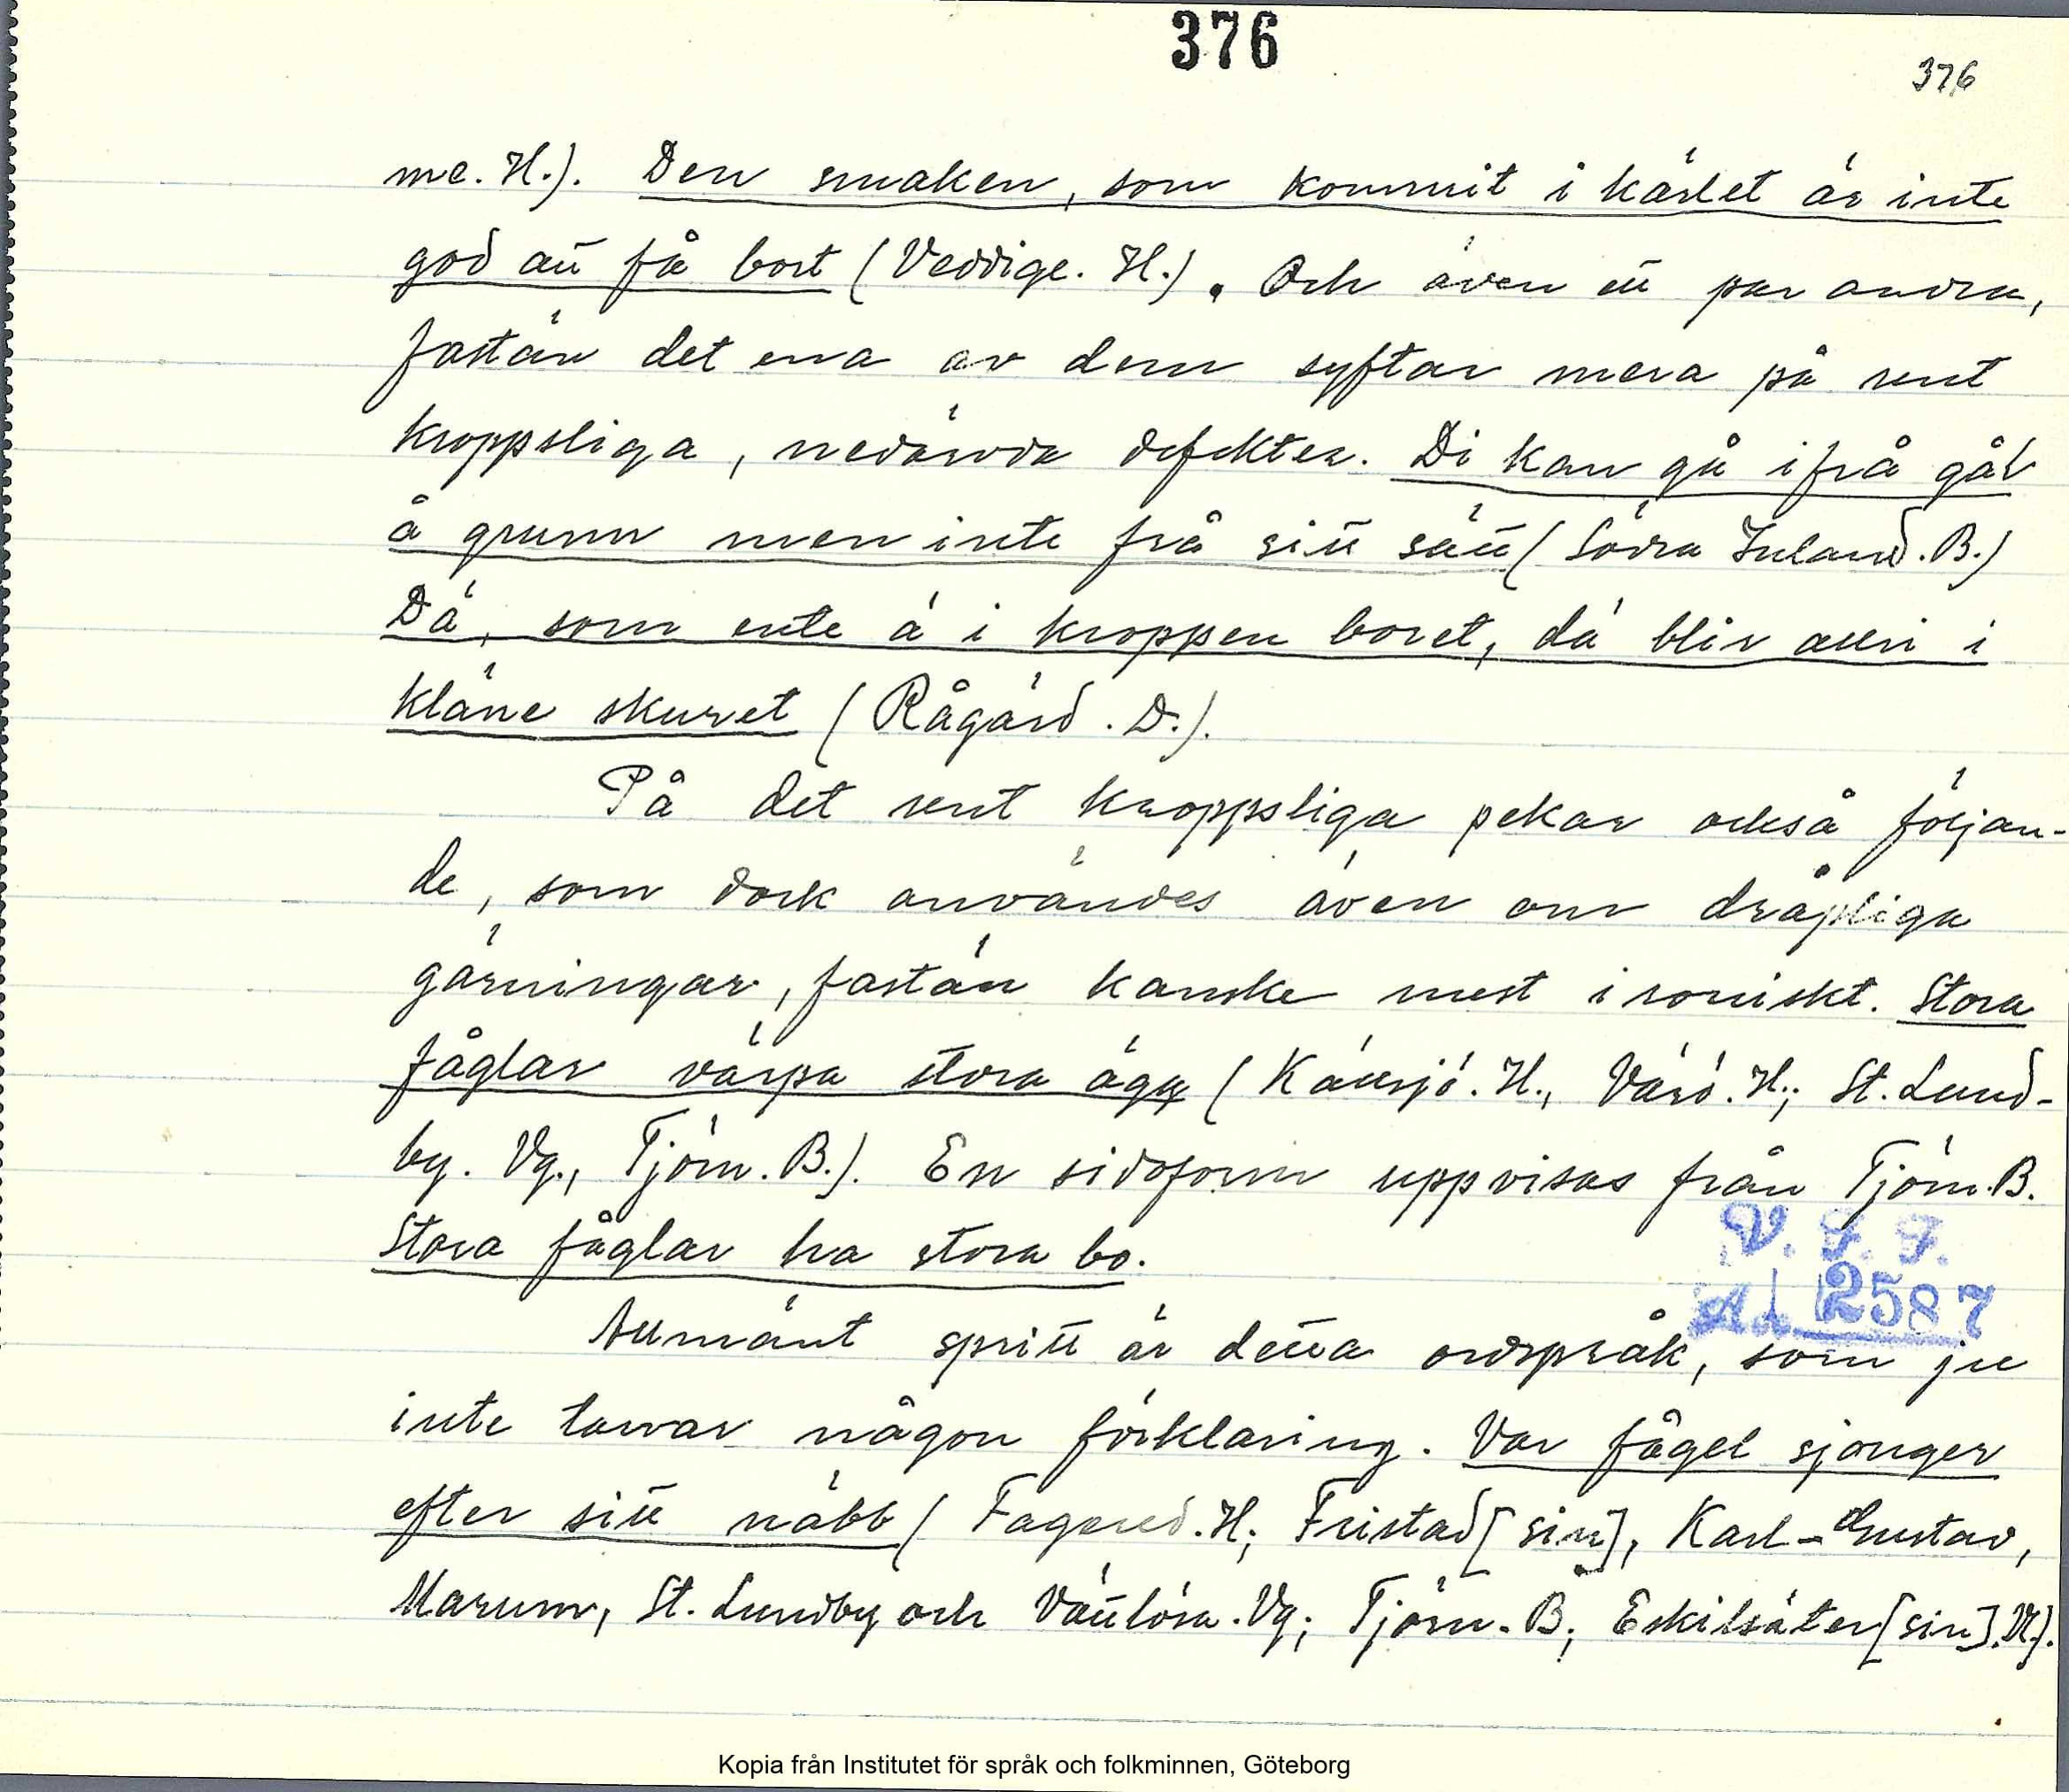 376
376
me. H.). Den smaken, som kommit i kärlet är inte
god att få bort (Veddige. H.). Och även ett par andra,
fastän det ena av dem syftar mera på rent
kroppsliga, nedärvda defekter. Di kan gå ifrå går
å grunn men inte frå sitt sätt (Södra Inland. B.)
Dä, som ente ä i kroppen boret, dä blir alri i
kläne skuret (Rågärd. D.).
På det rent kroppsliga pekar också följan-
de, som dock användes även om dråpliga
gärningar, fastän kanske mest ironiskt. Stora
fåglar värpa stora ägg (Källsjö. H., Värö. H.; St. Lund-
by. Vg., Tjörn. B.). En sidoform uppvisas från Tjörn. B.
Stora fåglar ha stora bo.
V. F. F.
2587
Allmänt spritt är detta ordspråk, som ju
inte tarvar någon förklaring. Var fågel sjonger
efter sitt näbb (Fagered. H; Fristad [sin], Karl-Gustav,
Marum, St. Lundby och Vättlösa. Vg; Tjörn. B; Eskilsäter [sin]. V.).
Kopia från Institutet för språk och folkminnen, Göteborg